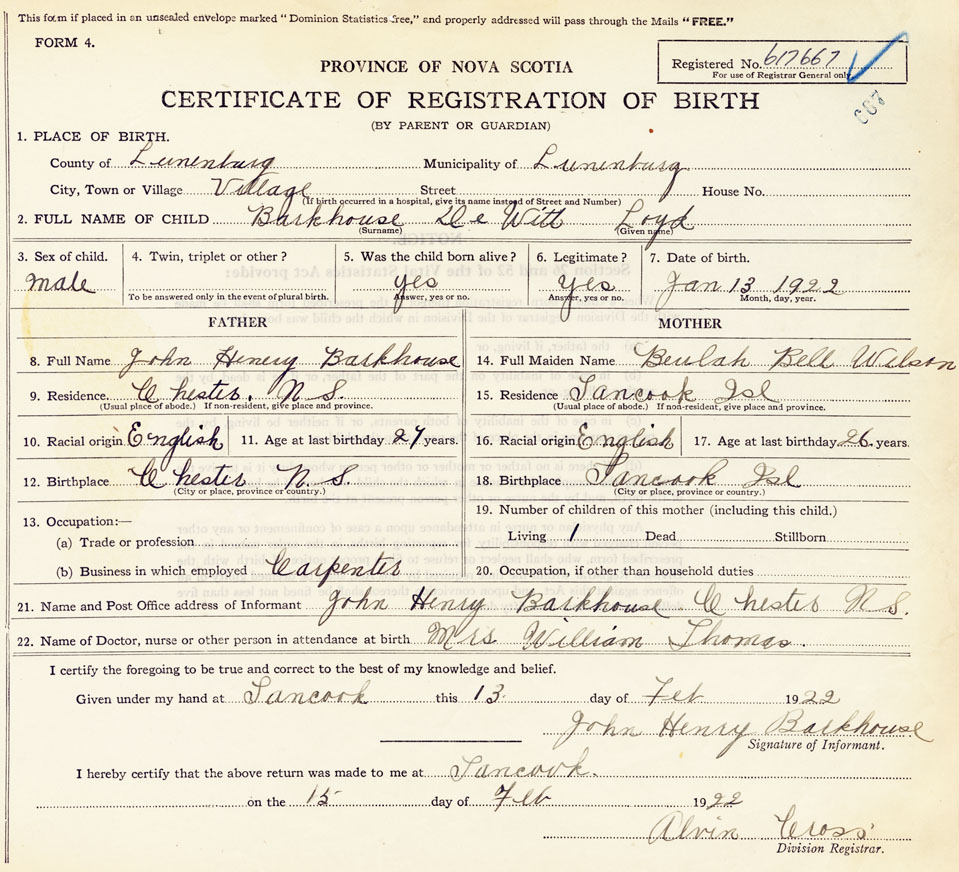 This form if placed in an unsealed envelope marked "Dominion Statistics free," and properly addressed will pass through the Mails "FREE."
FORM 4.
Registered No. 617667
For use of Registrar General only
667
PROVINCE OF NOVA SCOTIA
CERTIFICATE OF REGISTRATION OF BIRTH
(BY PARENT OR GUARDIAN)
1. PLACE OF BIRTH.
County of Lunenburg Municipality of Lunenburg
City, Town or Village Village Street House No.
(If birth occurred in a hospital, give its name instead of Street and Number)
2. FULL NAME OF CHILD Barkhouse De Witt Loyd
(Surname) (Given name)
3. Sex of child. 4. Twin, triplet or other? 5. Was the child born alive? 6. Legitimate? 7. Date of birth.
male yes yes Jan 13 1922
To be answered only in the event of plural birth. Answer, yes or no. Answer, yes or no. Month, day, year.
FATHER MOTHER
8. Full Name John Henery Barkhouse 14. Full Maiden Name Beulah Bell Wilson
9. Residence. Chester. N S. 15. Residence Tancook Isl
(Usual place of abode.) If non-resident, give place and province. (Usual place of abode.) If non-resident, give place and province.
10. Racial origin English 11. Age at last birthday 27 years. 16. Racial origin English 17. Age at last birthday 26. years.
12. Birthplace Chester N. S. 18. Birthplace Tancook Isl
(City or place, province or country.) (City or place, province or country.)
13. Occupation:— 19. Number of children of this mother (including this child.)
(a) Trade or profession Living 1 Dead Stillborn
(b) Business in which employed Carpenter 20. Occupation, if other than household duties
21. Name and Post Office address of Informant John Henry Barkhouse Chester N S.
22. Name of Doctor, nurse or other person in attendance at birth Mrs William Thomas.
I certify the foregoing to be true and correct to the best of my knowledge and belief.
Given under my hand at Tancook this 13. day of Feb 1922
John Henry Barkhouse
Signature of Informant.
I hereby certify that the above return was made to me at Tancook.
on the 15 day of Feb 1922
Alvin Cross
Division Registrar.